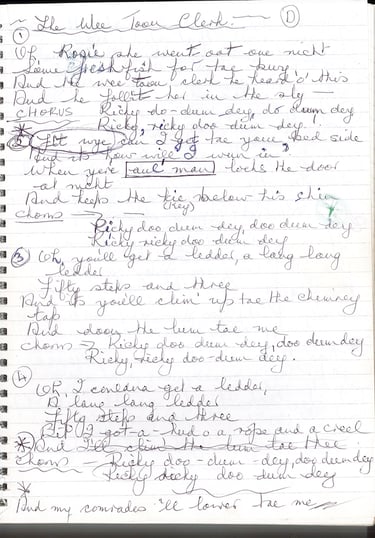 ~ The Wee Toon Clerk. ~ D
1 Oh Rosie she went oot one nicht
Some fresh fish for tae
And the wee toon clerk he heard o' this
And he follit her in the sly —
CHORUS Ricky do-dum dey, do dum dey
Ricky, ricky doo dum dey.
2 wye can I get tae your bed side
And it's how will I wun in
When yere aul man locks the door
at nicht
And keeps the kie below his shin
(Key)
Chorus → Ricky doo, dum dey, doo dum dey
Ricky ricky doo dum dey
3 Oh, you'll get a ledder, a lang lang
ledder
Fifty steps and three
And it's you'll clim' up tae the chimney
tap
And doon the lum tae me
Chorus → Ricky doo dum dey, doo dum dey
Ricky, ricky doo-dum dey.
4 Oh, I couldna get a ledder,
A lang lang ledder
Fifty steps and three
But I got a-hud o a rope and a creel
And I'll clim the lum tae thee
Chorus — Ricky doo-dum-dey, doo dum dey
Ricky ricky doo dum dey
And my comrades 'll lower tae me